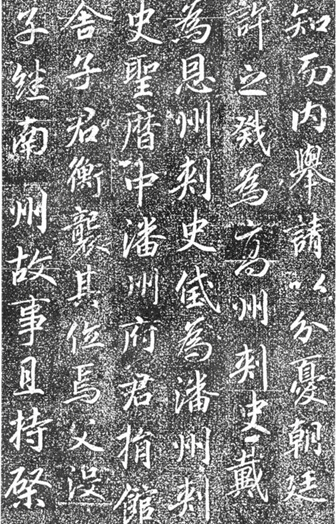 知而内舉請以分憂朝廷
許之戣為高州刺史戴
為恩州刺史為潘州刺
史聖曆中潘州府君捐館
舍子君衡襲其位焉父没
子継南州故事且持棨